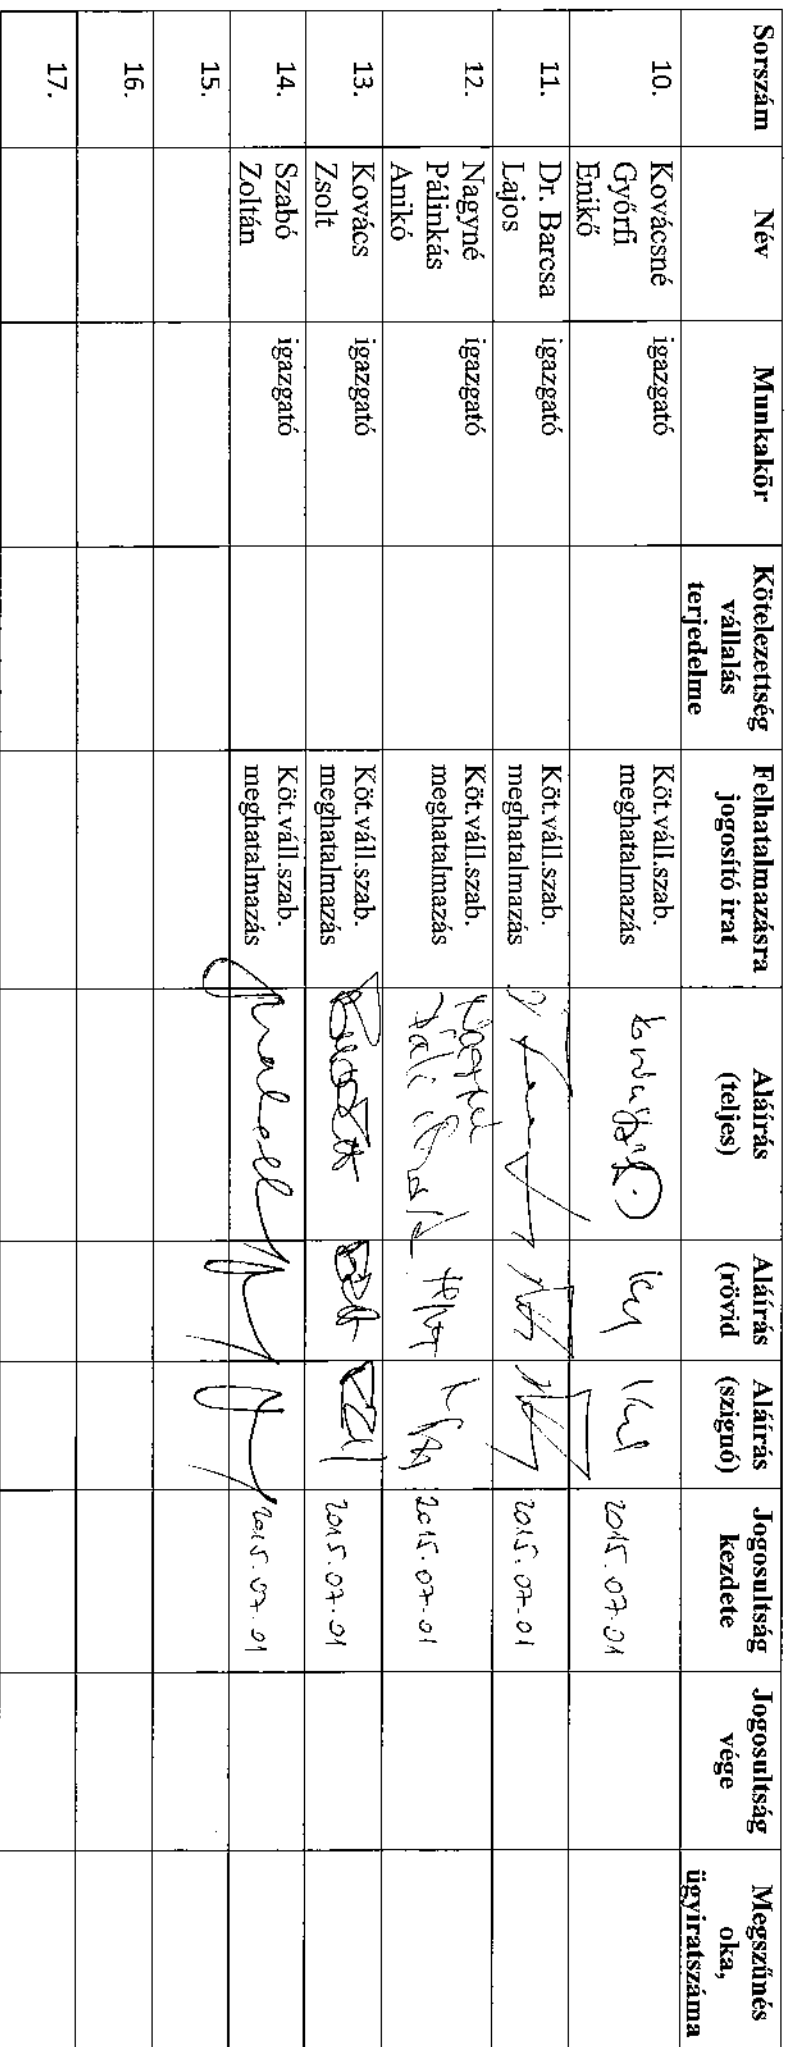 Sorszám
Név
Munkakör
Kötelezettség
vállalás
terjedelme
Felhatalmazásra
jogosító irat
Aláírás
(teljes)
Aláírás
(rövid
Aláírás
(szignó)
Jogosultság
kezdete
Jogosultság
vége
Megszűnés
oka,
ügyiratszáma
10.
Kovácsné
Győrfi
Enikő
igazgató
Köt.váll.szab.
meghatalmazás
2015.07.01
11.
Dr. Barcsa
Lajos
igazgató
Köt.váll.szab.
meghatalmazás
2015.07.01
12.
Nagyné
Pálinkás
Anikó
igazgató
Köt.váll.szab.
meghatalmazás
2015.07.01
13.
Kovács
Zsolt
igazgató
Köt.váll.szab.
meghatalmazás
2015.07.01
14.
Szabó
Zoltán
igazgató
Köt.váll.szab.
meghatalmazás
2015.07.01
15.
16.
17.